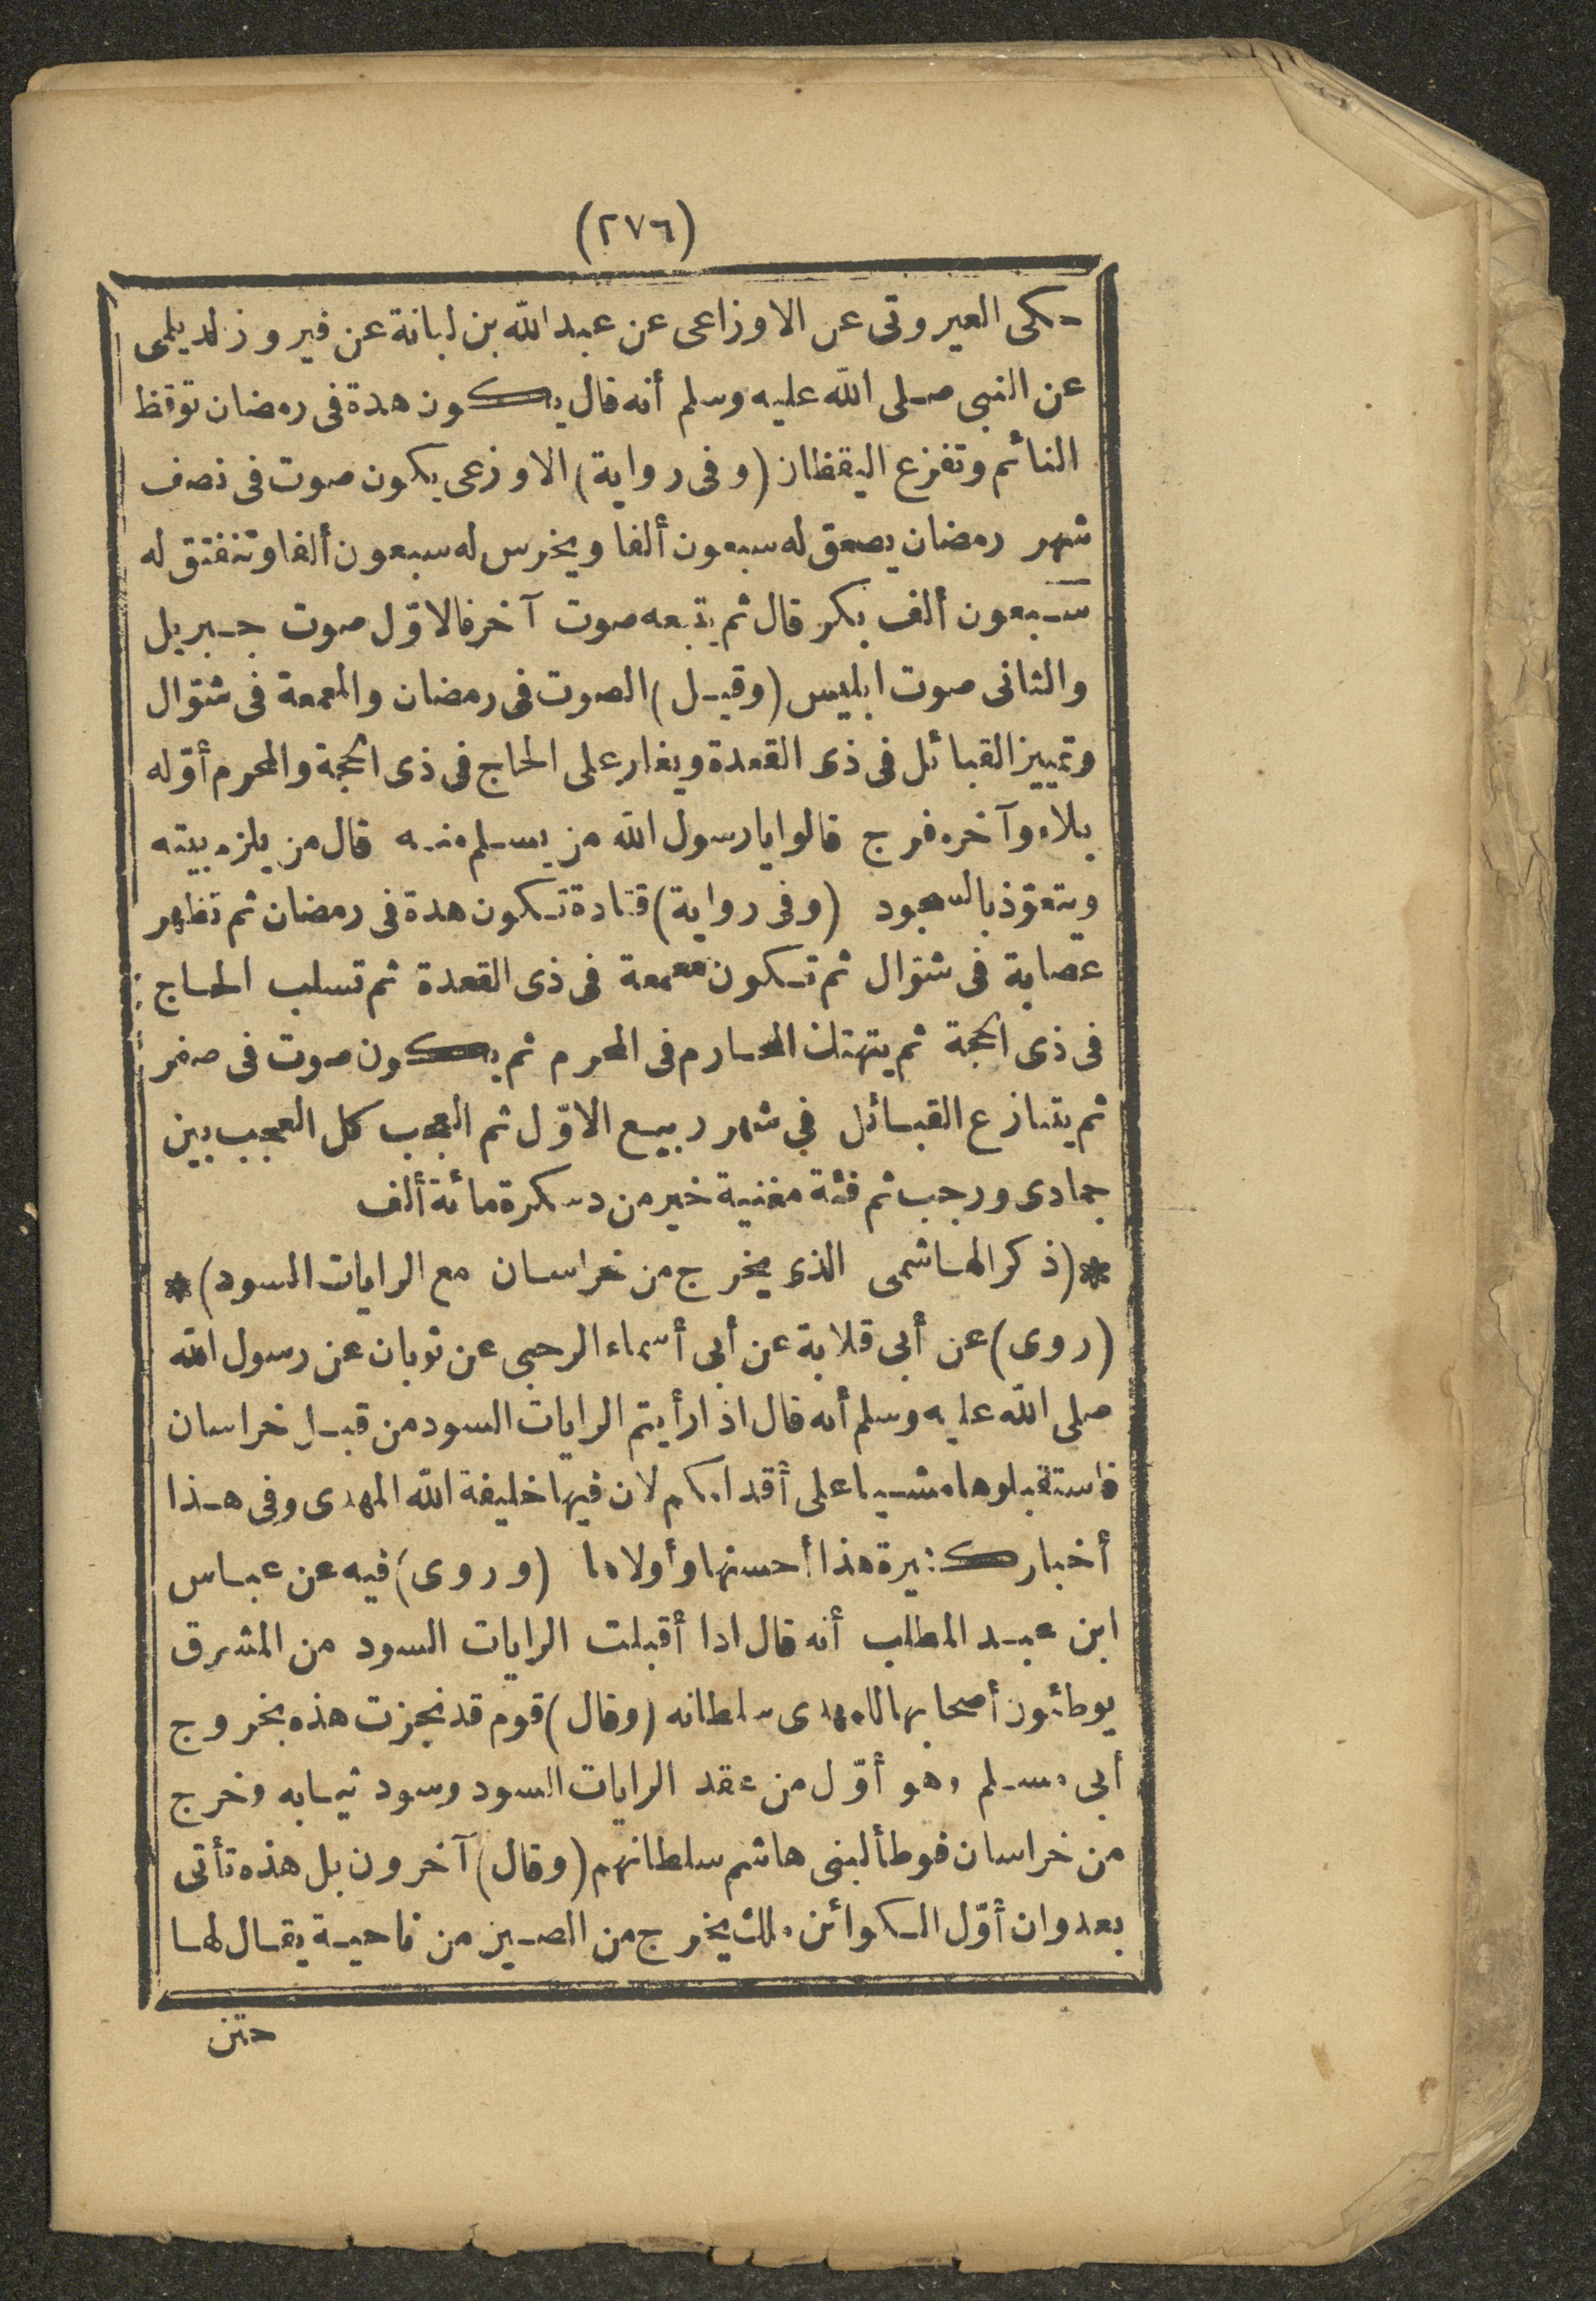 (٢٧٦)
حكى العيروتى عن الاوزاعى عن عبد الله بن لبانة عن فيروز لديلمى
عن النبى صلى الله عليه وسلم أنه قال يكون هدة فى رمضان توقظ
النائم وتفزع اليقظان (وفى رواية) الاوزعى يكون صوت فى نصف
شهر رمضان يصعق له سبعون ألفا ويخرس له سبعون ألفا وتنفتق له
سبعون ألف بكر قال ثم يتبعه صوت آخر فالاوّل صوت جبريل
والثانى صوت ابليس (وقيل) الصوت فى رمضان والمعمعة فى شوّال
وتمييز القبائل فى ذى القعدة ويغار على الحاج فى ذى الحجة والمحرم أوّله
بلاء وآخره فرج قالوا يا رسول الله من يسلم منه قال من يلزم بيته
ويتعوّذ بالسجود (وفى رواية) قتادة تكون هدة فى رمضان ثم تظهر
عصابة فى شوّال ثم تكون معمعة فى ذى القعدة ثم تسلب الحاج
فى ذى الحجة ثم يتهتك المحارم فى المحرم ثم يكون صوت فى صفر
ثم يتنازع القبائل فى شهر ربيع الاوّل ثم العجب كل العجب بين
جمادى ورجب ثم فئة مغنية خير من دسكرة مائة ألف
* (ذكر الهاشمى الذى يخرج من خراسان مع الرايات السود) *
(روى) عن أبى قلابة عن أبى أسماء الرحبى عن ثوبان عن رسول الله
صلى الله عليه وسلم أنه قال اذا رأيتم الرايات السود من قبل خراسان
فاستقبلوها مشيا على أقدامكم لان فيها خليفة الله المهدى وفى هذا
أخبار كثيرة هذا أحسنها وأولاها (وروى) فيه عن عباس
ابن عبد المطلب أنه قال اذا أقبلت الرايات السود من المشرق
يوطئون أصحابها للمهدى سلطانه (وقال) قوم قد نجزت هذه بخروج
أبى مسلم وهو أوّل من عقد الرايات السود وسود ثيابه وخرج
من خراسان فوطأ لبنى هاشم سلطانهم (وقال) آخرون بل هذه تأتى
بعد وان أوّل الكوائن ملك يخرج من الصين من ناحية يقال لها
ختن